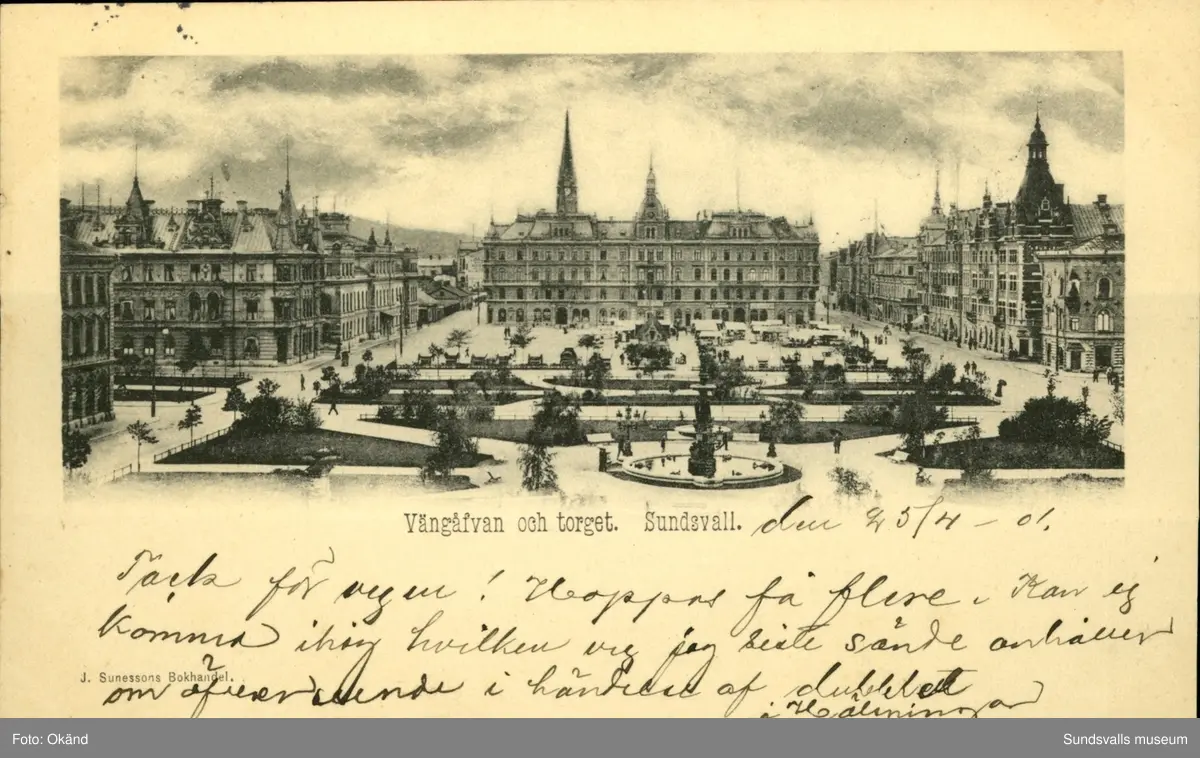 Vängåfvan och torget. Sundsvall. den 25/4 - 01.
Tack för vyen! Hoppas få flere. Kan ej
komma ihåg hvilken vy jag siste sände anhåller
J. Sunessons Bokhandel.
om återsände i händelse af dublett
Hälsningar
Foto: Okänd
Sundsvalls museum